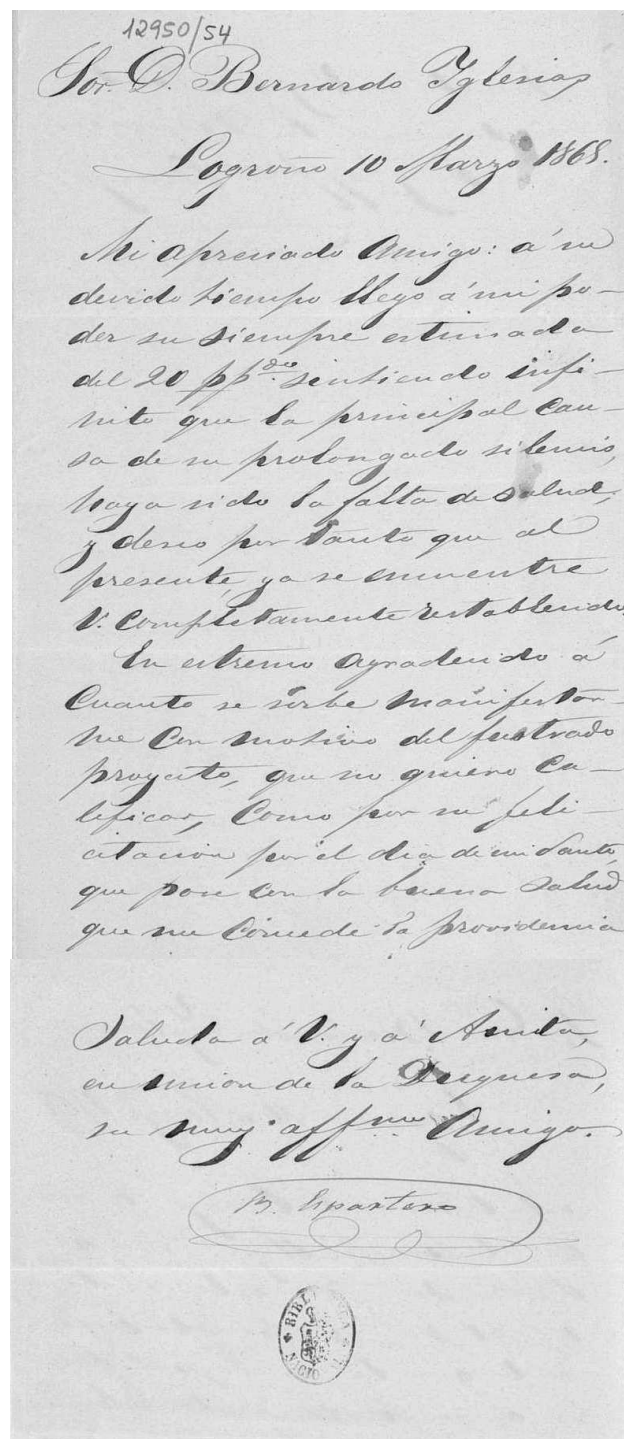 12950/54
Sor. D. Bernardo Yglesias
Logroño 10 Marzo 1868.
Mi apreciado Amigo: á su
devido tiempo llego á mi po-
der su siempre estimada
del 20 ppdo. sintiendo infi-
nito que la principal cau-
sa de su prolongado silencio,
haya sido la falta de salud,
y deseo por tanto que al
presente ya se encuentre
V. completamente restablecido.
En estremo agradecido á
cuanto se sirbe manifestar-
me con motivo del frustrado
proyecto, que no quiero ca-
lificar, como por su feli-
citacion por el dia de mi Santo,
que pase con la buena salud
que me concede la providencia
Saluda á V. y á Anita,
en union de la Duquesa,
su muy affmo Amigo.
B. Espartero
BIBLIOTECA
NACIONAL